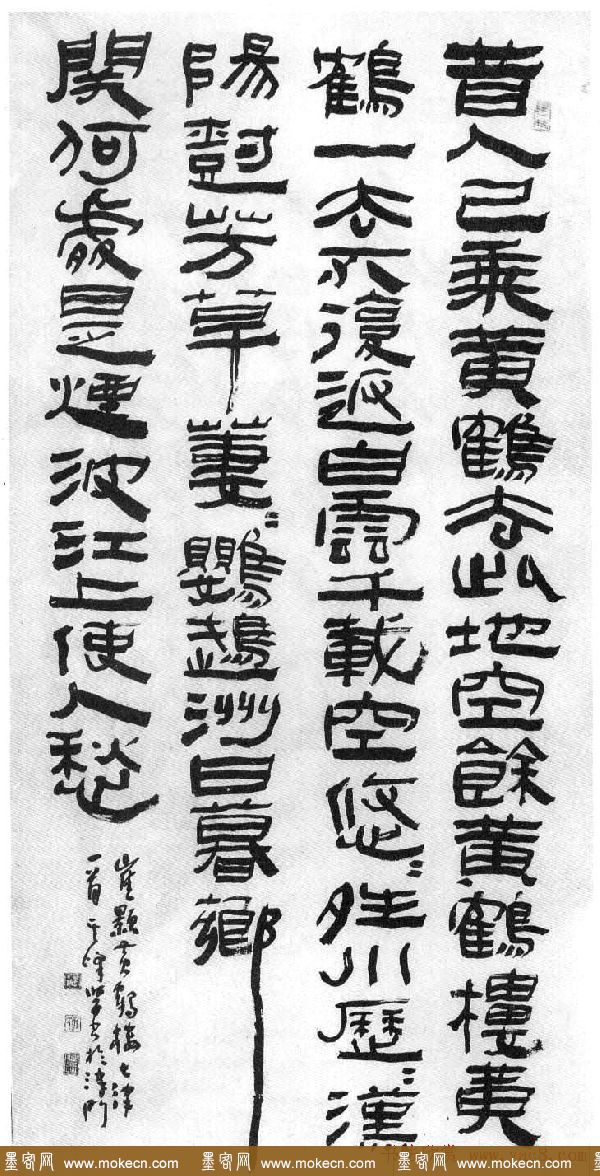 昔人已乘黄鶴去此地空餘黄鶴樓黄
鶴一去不復返白雲千載空悠〻夝川歷〻漢
陽尌芳草萋〻鸚鵡洲日暮鄉
関何處是煙波江上使人愁
崔顥黄鶴樓七律
一首 書於津門
墨客网 www.mokecn.com 墨客网 www.mokecn.com 墨客网 www.mokecn.com